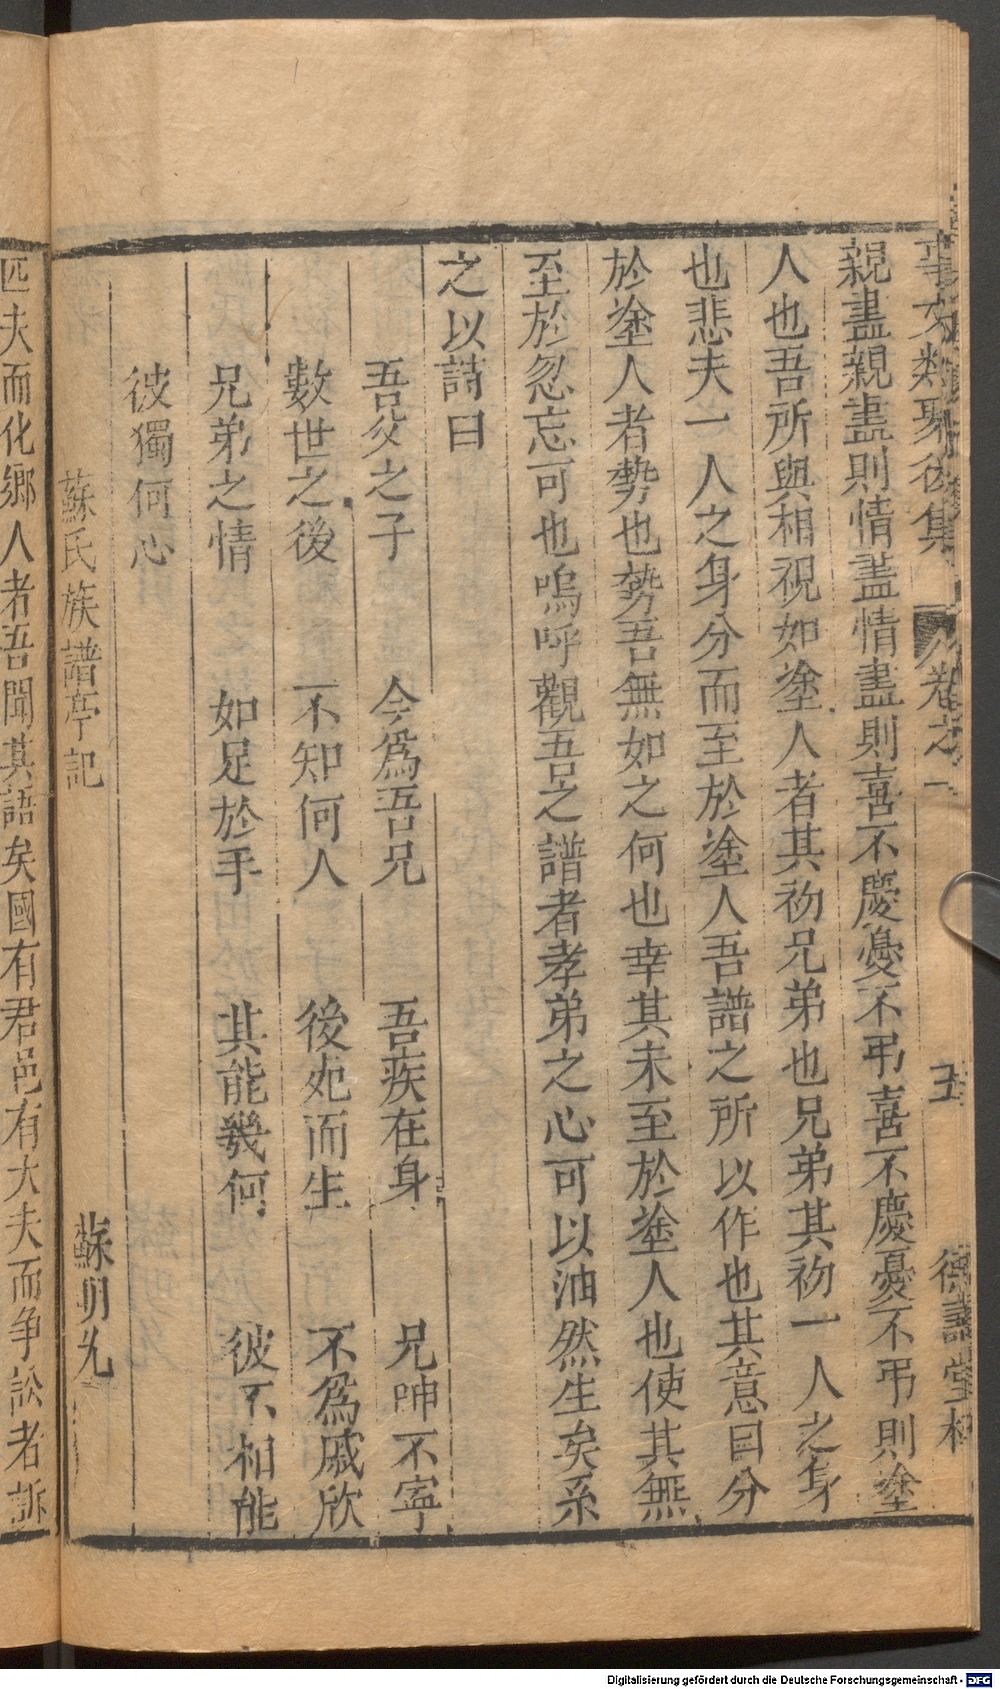 事文類聚後集 卷之一 五 德壽堂梓
親盡親盡則情盡情盡則喜不慶憂不弔喜不慶憂不弔則塗
人也吾所與相視如塗人者其初兄弟也兄弟其初一人之身
也悲夫一人之身分而至於塗人吾譜之所以作也其意曰分
於塗人者勢也勢吾無如之何也幸其未至於塗人也使其無
至於忽忘可也嗚呼觀吾之譜者孝弟之心可以油然生矣系
之以詩曰
吾父之子 今為吾兄 吾疾在身 兄呻不寧
數世之後 不知何人 彼死而生 不為戚欣
兄弟之情 如足於手 其能幾何 彼不相能
彼獨何心
蘇氏族譜亭記 蘇明允
匹夫而化鄉人者吾聞其語矣國有君邑有大夫而爭訟者訴
Digitalisierung gefördert durch die Deutsche Forschungsgemeinschaft - DFG